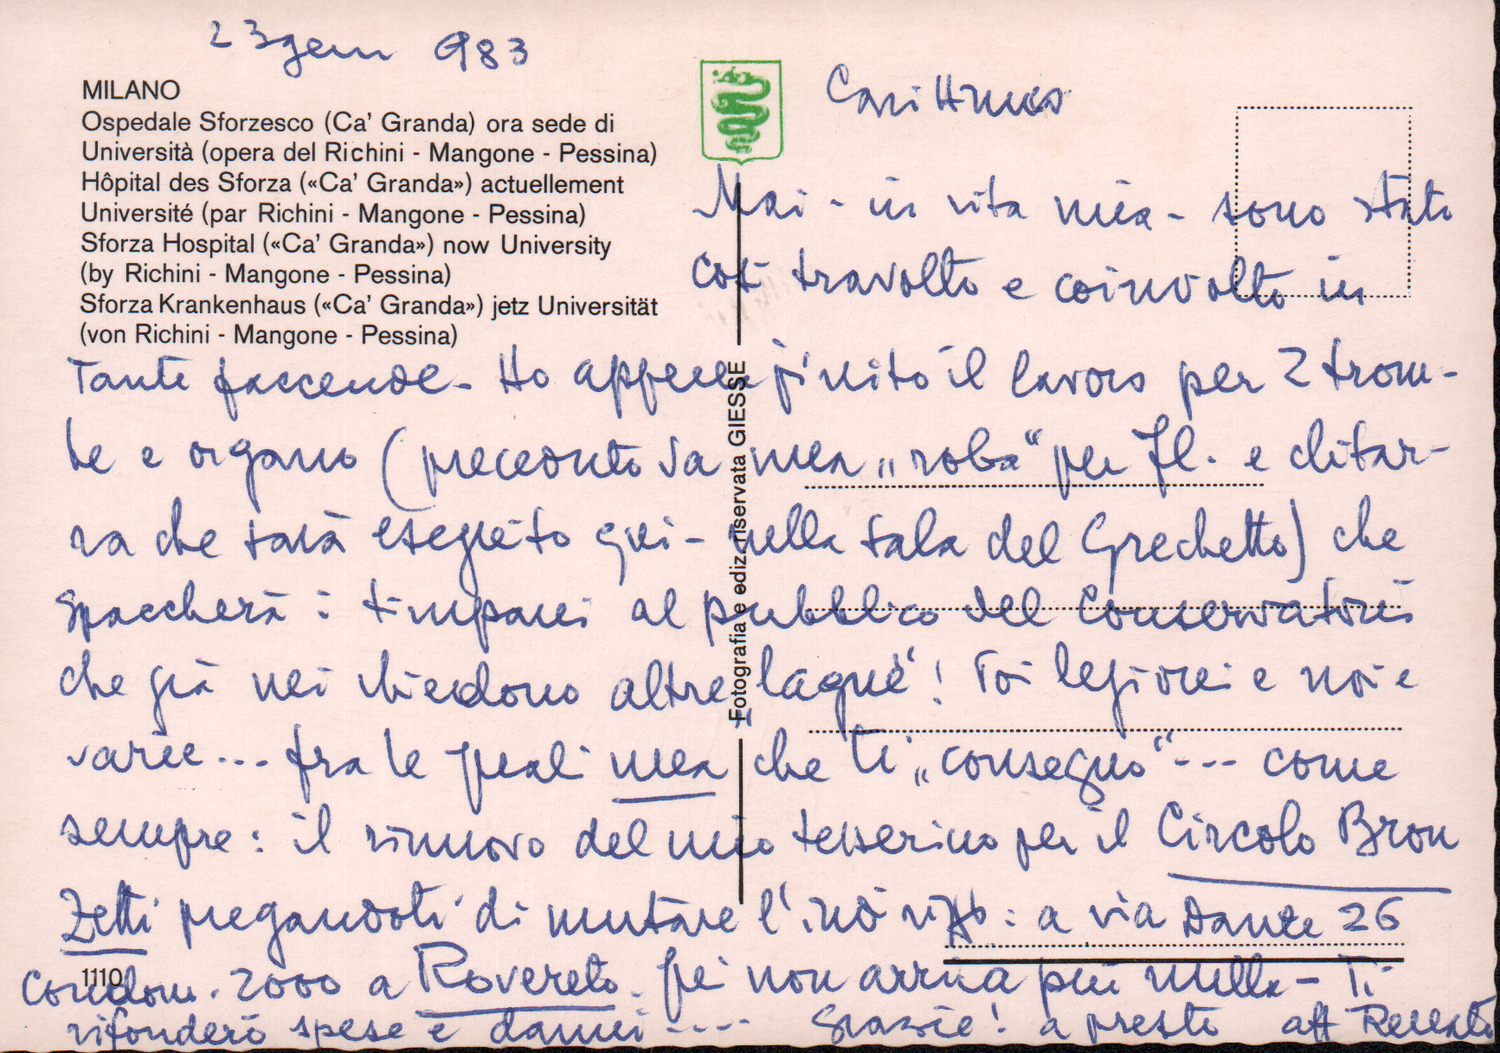 23 gen 983
MILANO
Ospedale Sforzesco (Ca' Granda) ora sede di
Università (opera del Richini - Mangone - Pessina)
Hôpital des Sforza («Ca' Granda») actuellement
Université (par Richini - Mangone - Pessina)
Sforza Hospital («Ca' Granda») now University
(by Richini - Mangone - Pessina)
Sforza Krankenhaus («Ca' Granda») jetz Universität
(von Richini - Mangone - Pessina)
Fotografia e ediz. riservata GIESSE
Mai - in vita mia - sono stato
così travolto e coinvolto in
tante faccende - Ho appena finito il lavoro per 2 trom-
be e organo (preceduto da mia „roba“ per Fl. e chitar-
ra che sarà eseguito qui - nella sala del Grechetto) che
spaccherà i timpani al pubblico del Conservatorio
che già mi chiedono altre „lagne“! Poi lezioni e noie
varie... fra le quali una che ti „consegno“ --- come
sempre: il rinnovo del mio tesserino per il Circolo Bron
Zetti pregandoti di mutare l' : a via Dante 26
1110
Condom. 2000 a Rovereto. Qui non arriva più nulla - Ti
rifonderò spese e danni ---- Grazie! a presto aff Renato